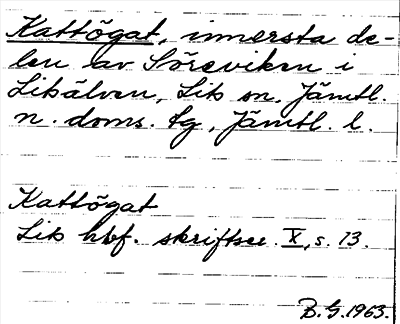 Kattögat, innersta de-
len av Söreviken i
Litälven, Lit sn. Jämtl.
n. doms. tg, Jämtl. l.
Kattögat
Lit hbf. skriftser. X, s. 13.
B. G. 1963.